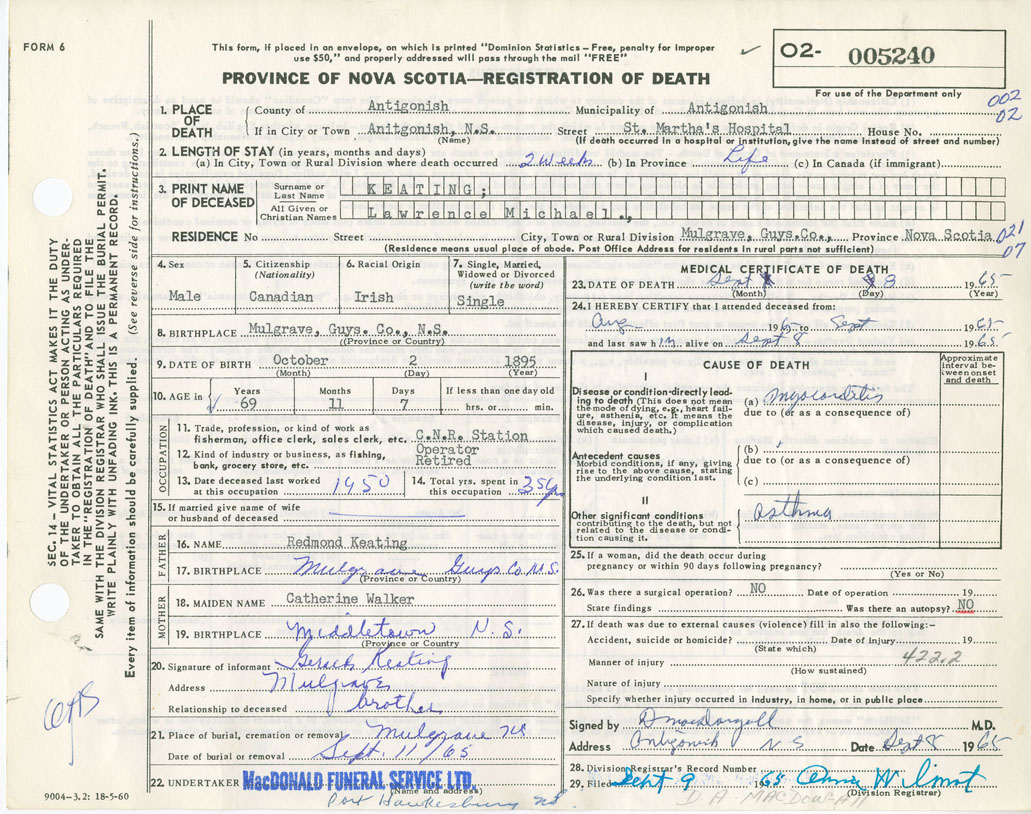 FORM 6
This form, if placed in an envelope, on which is printed "Dominion Statistics – Free, penalty for improper
use $50," and properly addressed will pass through the mail "FREE"
PROVINCE OF NOVA SCOTIA—REGISTRATION OF DEATH
O2- 005240
For use of the Department only
002
02
1. PLACE OF DEATH
County of Antigonish Municipality of Antigonish
If in City or Town Anitgonish, N.S. Street St. Martha's Hospital House No.
(Name) (If death occurred in a hospital or institution, give the name instead of street and number)
2. LENGTH OF STAY (in years, months and days)
(a) In City, Town or Rural Division where death occurred 2 Weeks (b) In Province Life (c) In Canada (if immigrant)
3. PRINT NAME OF DECEASED
Surname or Last Name KEATING;
All Given or Christian Names Lawrence Michael.,
RESIDENCE No Street City, Town or Rural Division Mulgrave, Guys.Co., Province Nova Scotia
(Residence means usual place of abode. Post Office Address for residents in rural parts not sufficient)
021
07
4. Sex
Male
5. Citizenship (Nationality)
Canadian
6. Racial Origin
Irish
7. Single, Married, Widowed or Divorced (write the word)
Single
8. BIRTHPLACE Mulgrave, Guys. Co., N.S.
((Province or Country)
9. DATE OF BIRTH October 2 1895
(Month) (Day) (Year)
10. AGE in
Years Months Days If less than one day old
69 11 7 hrs. or min.
OCCUPATION
11. Trade, profession, or kind of work as
fisherman, office clerk, sales clerk, etc. C.N.R. Station
12. Kind of industry or business, as fishing, Operator
bank, grocery store, etc. Retired
13. Date deceased last worked at this occupation 1950
14. Total yrs. spent in this occupation 35 yrs
15. If married give name of wife
or husband of deceased
FATHER
16. NAME Redmond Keating
17. BIRTHPLACE Mulgrave Guys Co N.S.
(Province or Country)
MOTHER
18. MAIDEN NAME Catherine Walker
19. BIRTHPLACE Middletown N.S.
(Province or Country)
20. Signature of informant Keating
Address Mulgrave
Relationship to deceased brother
21. Place of burial, cremation or removal Mulgrave NS
Date of burial or removal Sept. 11/65
22. UNDERTAKER MacDONALD FUNERAL SERVICE LTD.
(Name and address)
Port Hawkesbury NS.
MEDICAL CERTIFICATE OF DEATH
23. DATE OF DEATH Sept 8 1965
(Month) (Day) (Year)
24. I HEREBY CERTIFY that I attended deceased from:
Aug 1965 to Sept 1965
and last saw him alive on Sept 8 1965
CAUSE OF DEATH
Approximate interval between onset and death
I
Disease or condition directly leading to death (This does not mean the mode of dying, e.g., heart failure, asthenia, etc. It means the disease, injury, or complication which caused death.)
(a) Myocarditis
due to (or as a consequence of)
Antecedent causes
Morbid conditions, if any, giving rise to the above cause, stating the underlying condition last.
(b)
due to (or as a consequence of)
(c)
II
Other significant conditions
contributing to the death, but not related to the disease or condition causing it.
asthma
25. If a woman, did the death occur during
pregnancy or within 90 days following pregnancy?
(Yes or No)
26. Was there a surgical operation? NO Date of operation 19
State findings Was there an autopsy? NO
27. If death was due to external causes (violence) fill in also the following:–
Accident, suicide or homicide? Date of Injury 19
(State which)
422.2
Manner of injury
(How sustained)
Nature of injury
Specify whether injury occurred in Industry, in home, or in public place
Signed by D MacDougall M.D.
Address Antigonish N S Date Sept 8 1965
28. Division Registrar's Record Number
29. Filed Sept 9 1965 Anna Wilmot
(Division Registrar)
D. A. MACDOUGALL
SEC. 14 – VITAL STATISTICS ACT MAKES IT THE DUTY
OF THE UNDERTAKER OR PERSON ACTING AS UNDER-
TAKER TO OBTAIN ALL THE PARTICULARS REQUIRED
IN THE "REGISTRATION OF DEATH" AND TO FILE THE
SAME WITH THE DIVISION REGISTRAR WHO SHALL ISSUE THE BURIAL PERMIT.
WRITE PLAINLY WITH UNFADING INK. THIS IS A PERMANENT RECORD.
Every item of information should be carefully supplied. (See reverse side for instructions.)
9004–3.2: 18-5-60